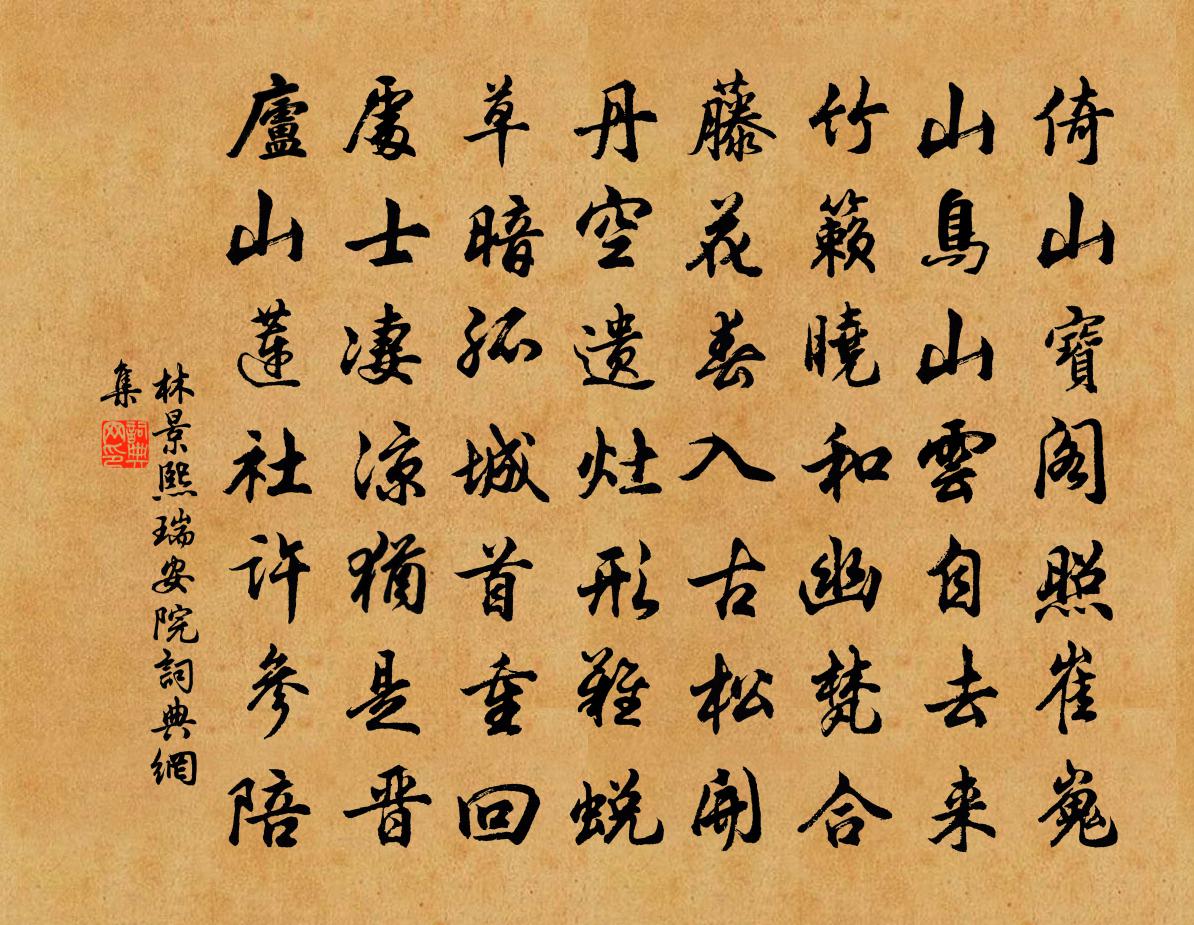 倚山寶閣照崔嵬
山鳥山雲自去来
竹籟曉和幽梵合
藤花春入古松開
丹空遺灶形難蜕
草暗孤城首重回
處士淒凉猶是晋
廬山蓮社許參陪
林景熙瑞安院詞典網
集
詞典
网印